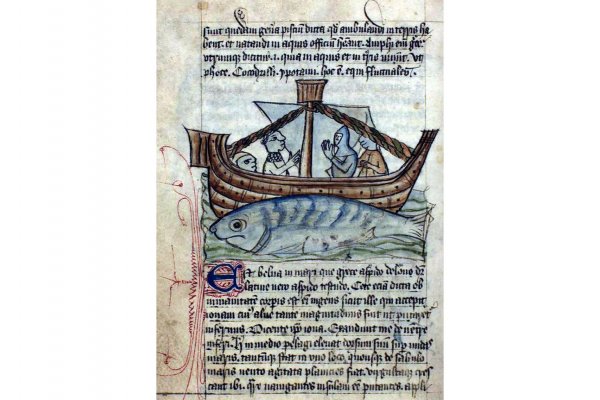 sunt quedam gen̄a pisciū dicta qd ambulandi in terris ha
bent. et natandi in aquis officiū
dicitur .i. qui in aquis et in tr̄is uiuit. vt
phoce. Cocodrilli. ypotami. hoc ē. equi fluctuales.
Est belua in mari que grece aspido delono dr̄
latine uero aspido testudo. Cete eciā dicta ob
immanitatem corpis est enī ingens sicut ille qui accepit
ionam cui' alue tante magnitudinis fuit ut putaret
infernus. Dicente ip̄o iona. Exaudiuit me de uentre
inferi. in medio pelagi eleuat dorsum suū sup undas
maris. stat in vno loco quousque de sabulo
maris uento agitata planicies fiat. cres
cant ibi. nauigantes insulam eē putantes. appli